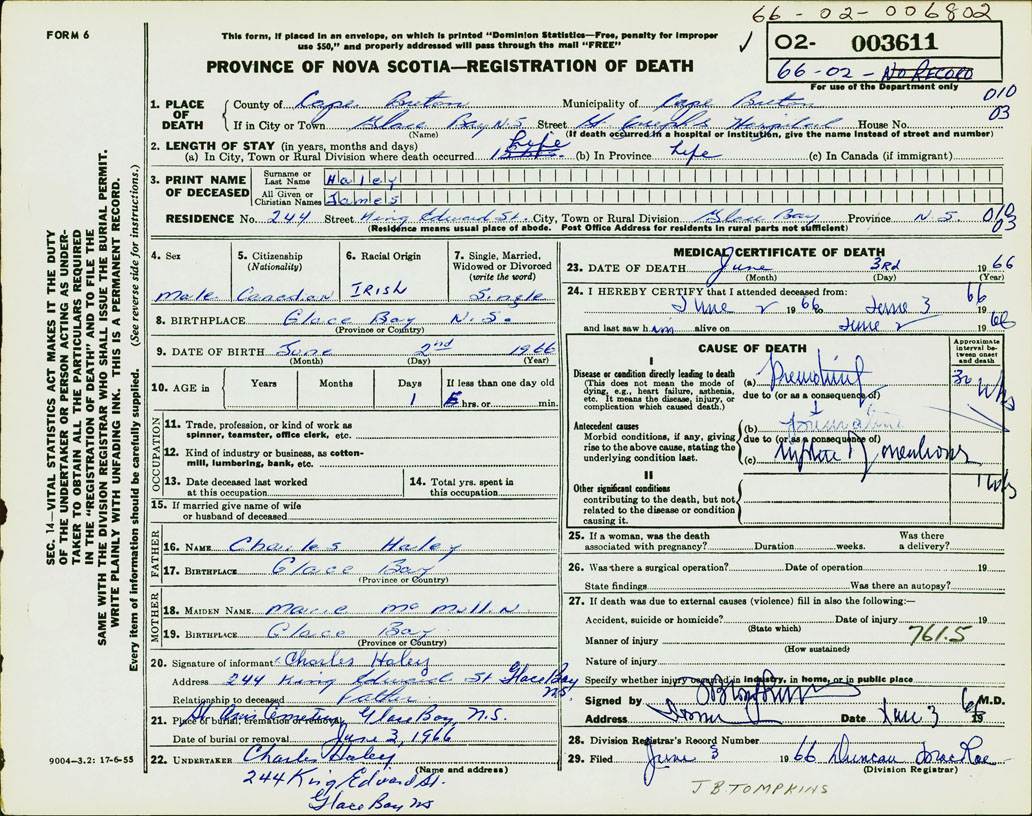 66-02-006802
FORM 6
This form, if placed in an envelope, on which is printed "Dominion Statistics—Free, penalty for improper
use $50," and properly addressed will pass through the mail "FREE"
✓ 02- 003611
66-02- NO RECORD
For use of the Department only
PROVINCE OF NOVA SCOTIA—REGISTRATION OF DEATH
010
03
1. PLACE OF DEATH { County of Cape Breton Municipality of Cape Breton
If in City or Town Glace Bay N.S. Street St. Joseph's Hospital House No.
(Name) (If death occurred in a hospital or institution, give the name instead of street and number)
2. LENGTH OF STAY (in years, months and days) Life
(a) In City, Town or Rural Division where death occurred (b) In Province Life (c) In Canada (if immigrant)
3. PRINT NAME OF DECEASED
Surname or Last Name Haley
All Given or Christian Names James
RESIDENCE No. 244 Street King Edward St. City, Town or Rural Division Glace Bay Province N.S. 010
03
(Residence means usual place of abode. Post Office Address for residents in rural parts not sufficient)
4. Sex
Male
5. Citizenship
(Nationality)
Canadian
6. Racial Origin
IRISH
7. Single, Married,
Widowed or Divorced
(write the word)
Single
8. BIRTHPLACE Glace Bay N.S.
(Province or Country)
9. DATE OF BIRTH June 2nd 1966
(Month) (Day) (Year)
10. AGE in Years Months Days If less than one day old
1 hrs. or min.
OCCUPATION
11. Trade, profession, or kind of work as
spinner, teamster, office clerk, etc.
12. Kind of industry or business, as cotton-
mill, lumbering, bank, etc.
13. Date deceased last worked
at this occupation
14. Total yrs. spent in
this occupation
15. If married give name of wife
or husband of deceased
FATHER
16. NAME Charles Haley
17. BIRTHPLACE Glace Bay
(Province or Country)
MOTHER
18. MAIDEN NAME Marie
19. BIRTHPLACE Glace Bay
(Province or Country)
20. Signature of informant Charles Haley
Address 244 King Edward St Glace Bay
NS
Relationship to deceased Father
21. Place of burial, cremation or removal Glace Bay, N.S.
Date of burial or removal June 3, 1966
22. UNDERTAKER Charles Haley
(Name and address)
244 King Edward St.
Glace Bay NS
MEDICAL CERTIFICATE OF DEATH
23. DATE OF DEATH June 3rd 1966
(Month) (Day) (Year)
24. I HEREBY CERTIFY that I attended deceased from:
June 2 1966 to June 3 1966
and last saw him alive on June 2 1966
CAUSE OF DEATH
Approximate interval between onset and death
I
Disease or condition directly leading to death
(This does not mean the mode of
dying, e.g., heart failure, asthenia,
etc. It means the disease, injury, or
complication which caused death.)
(a)
due to (or as a consequence of)
30 wks
Antecedent causes
Morbid conditions, if any, giving
rise to the above cause, stating the
underlying condition last.
(b)
due to (or as a consequence of)
(c) rupture of membranes
II
Other significant conditions
contributing to the death, but not
related to the disease or condition
causing it.
25. If a woman, was the death
associated with pregnancy? Duration weeks. Was there
a delivery?
26. Was there a surgical operation? Date of operation 19
State findings Was there an autopsy?
27. If death was due to external causes (violence) fill in also the following:—
Accident, suicide or homicide? Date of injury 19
(State which)
Manner of injury 761.5
(How sustained)
Nature of injury
Specify whether injury occurred in industry, in home, or in public place
Signed by M.D.
Address Date June 3
28. Division Registrar's Record Number
29. Filed June 3 1966 Duncan MacRae
(Division Registrar)
J B TOMPKINS
SEC. 14—VITAL STATISTICS ACT MAKES IT THE DUTY
OF THE UNDERTAKER OR PERSON ACTING AS UNDER-
TAKER TO OBTAIN ALL THE PARTICULARS REQUIRED
IN THE "REGISTRATION OF DEATH" AND TO FILE THE
SAME WITH THE DIVISION REGISTRAR WHO SHALL ISSUE THE BURIAL PERMIT.
WRITE PLAINLY WITH UNFADING INK. THIS IS A PERMANENT RECORD.
Every item of information should be carefully supplied. (See reverse side for instructions.)
9004—3.2: 17-6-55